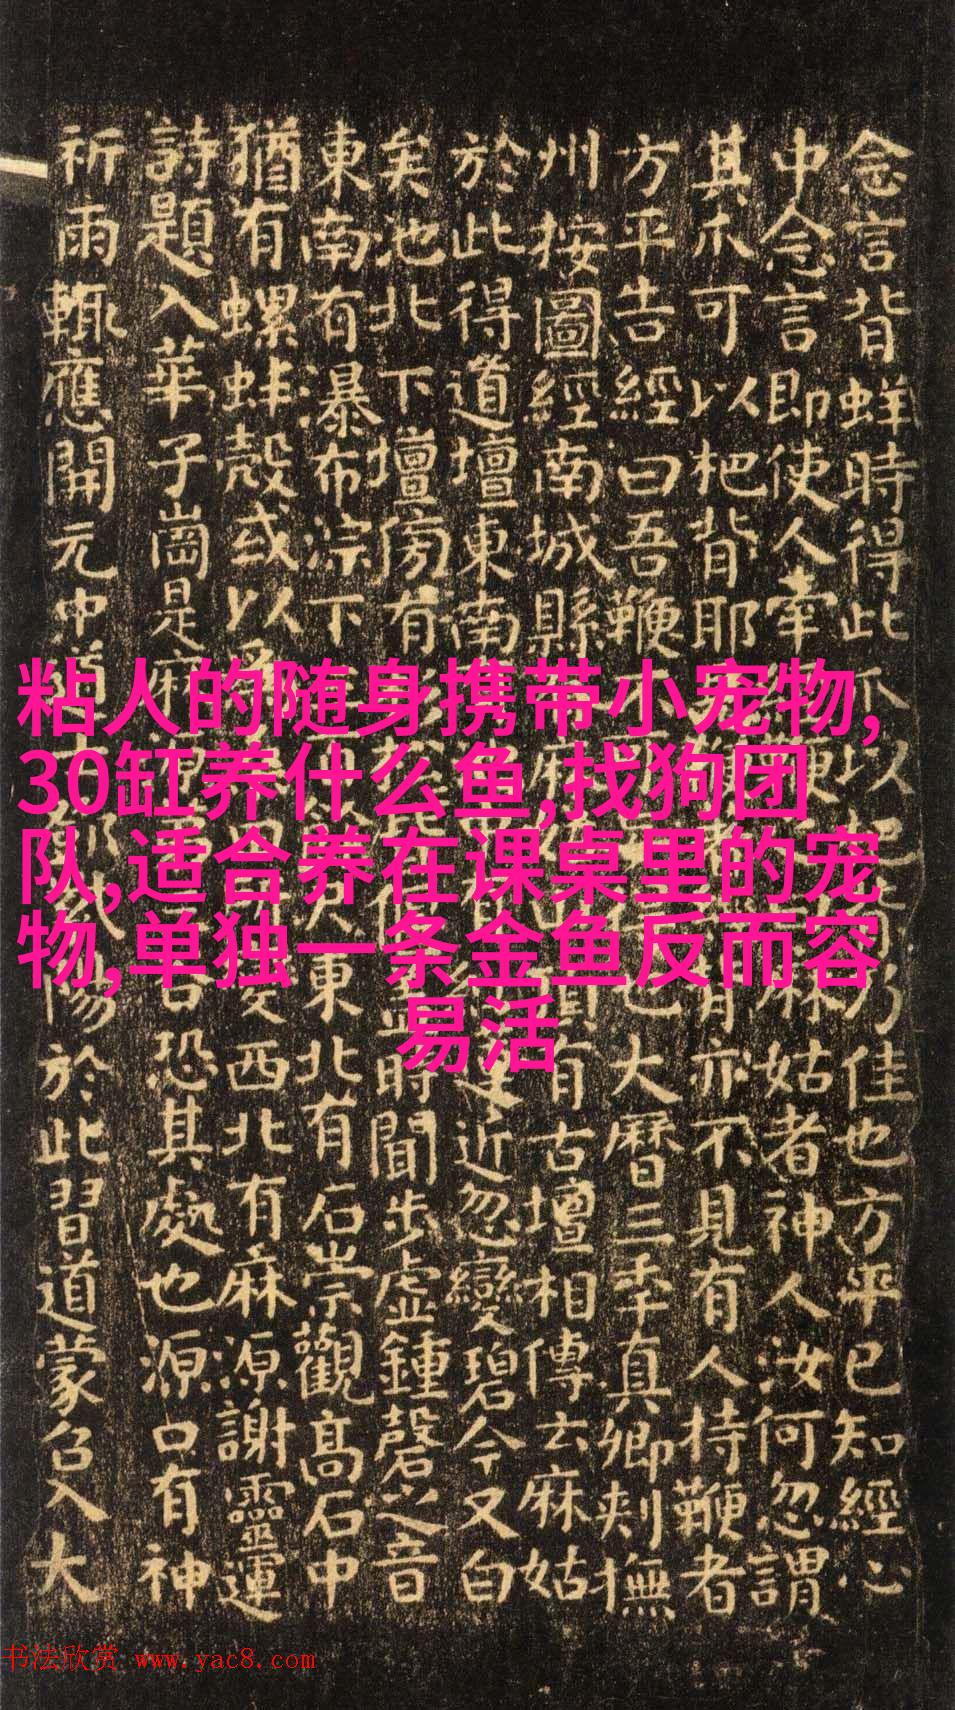 念言背蛘時得此爪以把背乃佳也方平已知經心
中念言即使人牽鞭麻姑者神人汝何忽謂
其爪可以把背耶有亦不見有人持鞭者
方平告經曰吾鞭不也大曆三年真卿刺撫
州按圖經南城縣有麻頂有古壇相傳云麻姑
於此得道壇東南近忽變碧今又白
矣池北下壇傍有松時聞步虛鍾磬之音
東南有瀑布淙下東北有石崇觀高石中
猶有螺蚌殼或以為西北有麻源謝靈運
詩題入華子崗是麻恐其處也源口有神
祈雨輒應開元中道士鄧紫陽於此習道蒙召入大
粘人的随身携带小宠物,
30缸养什么鱼,找狗团
队,适合养在课桌里的宠
物,单独一条金鱼反而容
易活
书法欣赏 www.yac8.com